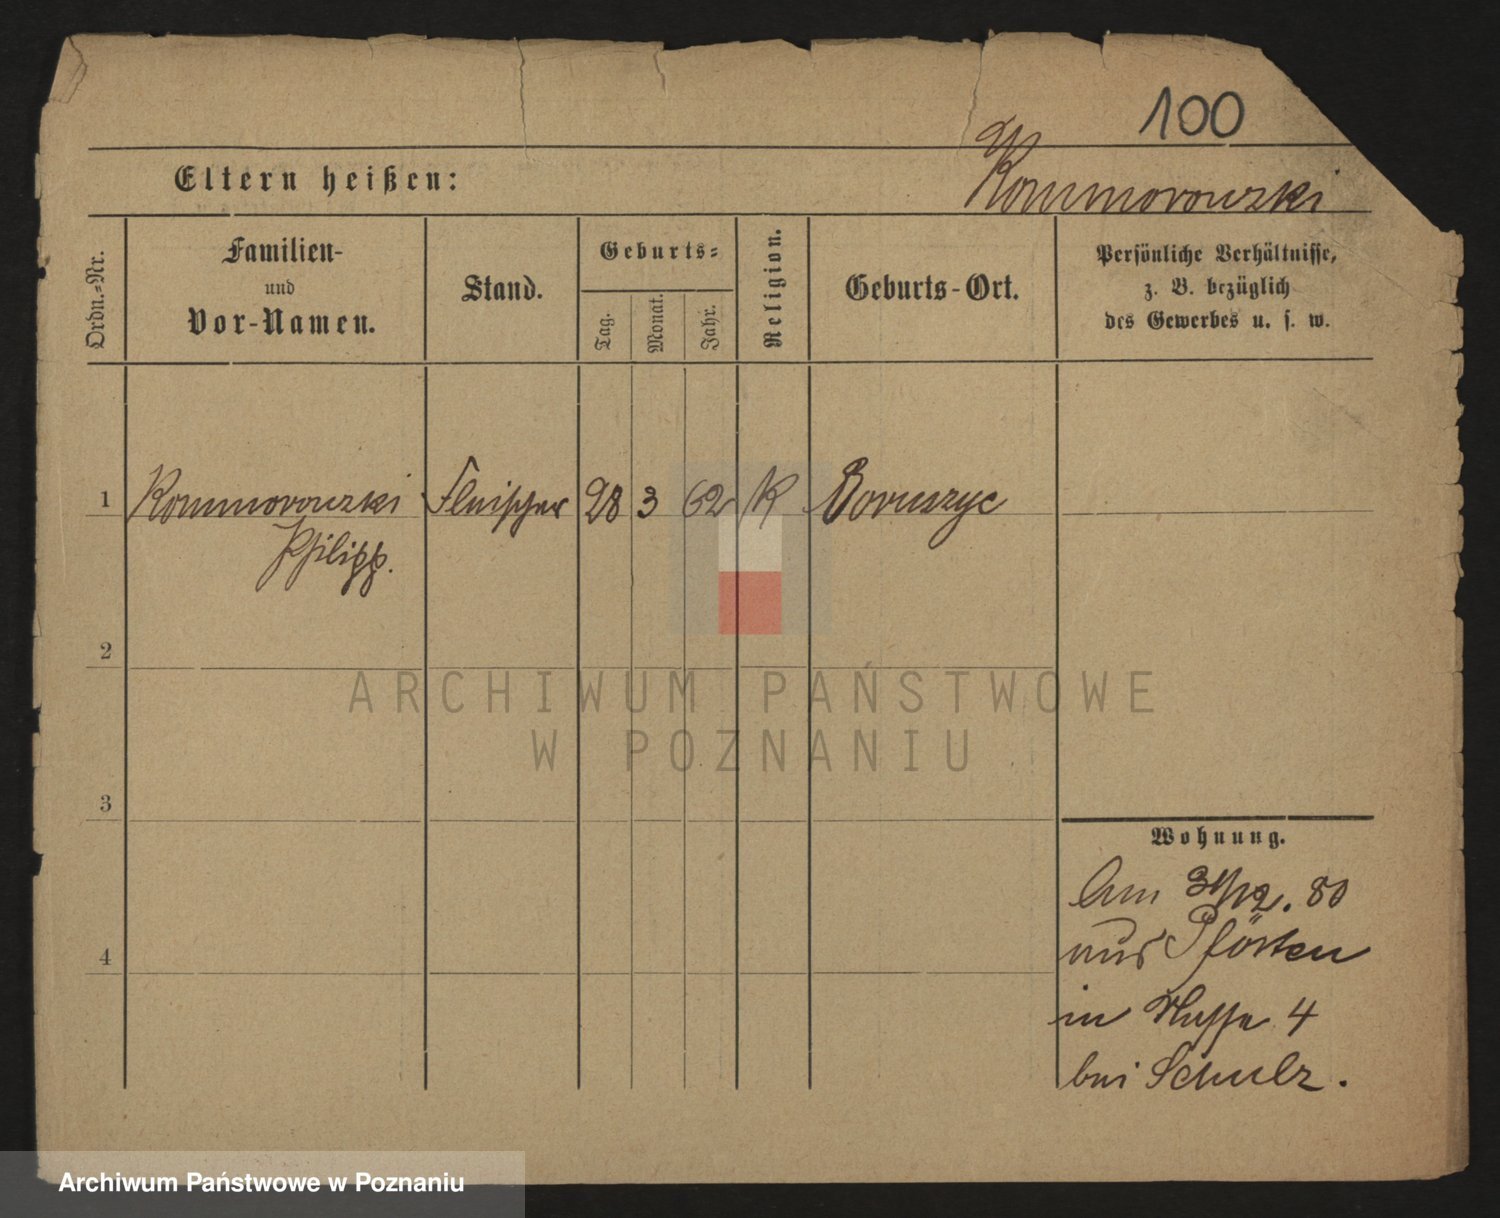 100
Eltern heißen:
Kommorowski
Ordn.-Nr.
Familien-
und
Vor-Namen.
Stand.
Geburts-
Tag.
Monat.
Jahr.
Religion.
Geburts-Ort.
Persönliche Verhältnisse,
z. B. bezüglich
des Gewerbes u. s. w.
1 Kommorowski Fleischer 28 3 62 K
Philipp.
2
ARCHIWUM PAŃSTWOWE
W POZNANIU
3
Wohnung.
Am 31/12. 80
aus Pförten
4
in 4
bei Schulz.
Archiwum Państwowe w Poznaniu